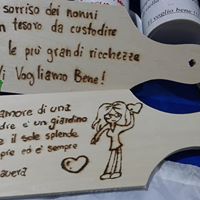 sorriso dei nonni
n tesoro da custodire
le più grandi ricchezze
Vi Vogliamo Bene!
i voglio bene !!
amore di una
dre è un giardino
e il sole splende
pre ed è sempre
avera